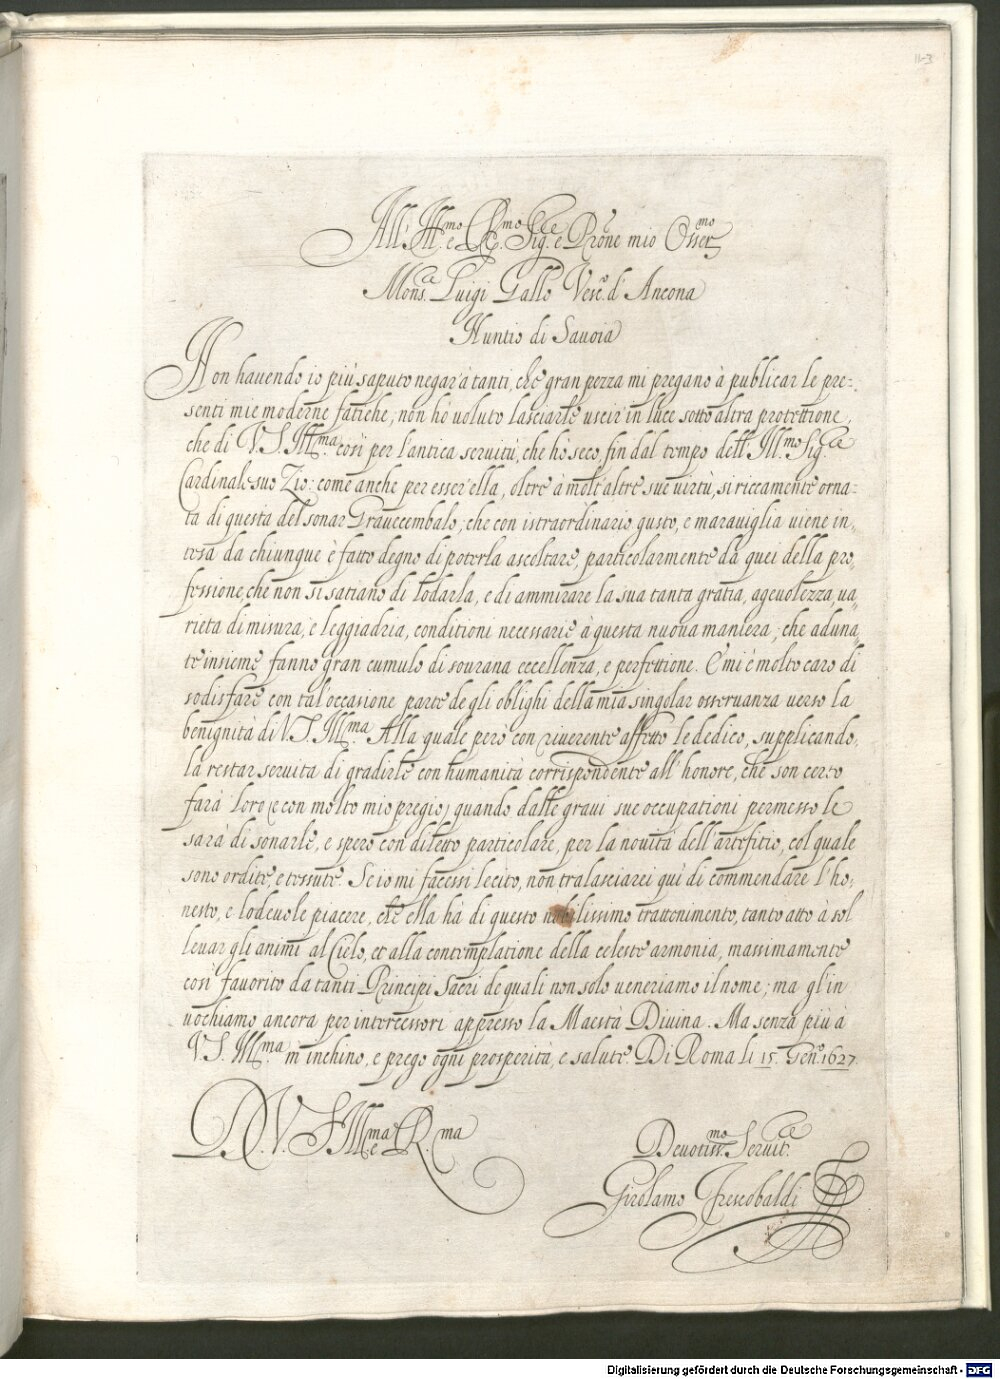 11-3
All' Ill.mo e R.mo Sig.re e Prōne mio Osser.mo
Mons.re Luigi Gallo Vesc.o d' Ancona
Nuntio di Sauoia
Non hauendo io più saputo negar à tanti, che gran pezza mi pregano à publicar le pre-
senti mie moderne fatiche, non hò uoluto lasciarle uscir' in luce sotto altra protettione,
che di V. S. Ill.ma così per l'antica seruitù, che hò seco, fin dal tempo dell' Ill.mo Sig.re
Cardinale suo Zio: come anche per esser' ella, oltre à molt' altre sue virtù, si riccamente orna-
ta di questa del sonar Grauecembalo, che con istraordinario gusto, e marauiglia uiene in-
tesa da chiunque è fatto degno di poterla ascoltare, particolarmente da quei della pro-
fessione, che non si satiano di lodarla, e di ammirare la sua tanta gratia, ageuolezza, ua-
rietà di misura, e leggiadria, conditioni necessarie à questa nuoua maniera, che aduna-
te insieme fanno gran cumulo di sourana eccellenza, e perfettione. E mi è molto caro di
sodisfare con tal'occasione parte de gli oblighi della mia singolar osseruanza uerso la
benignità di V. S. Ill.ma Alla quale però con riuerente affetto le dedico, supplicando-
la restar seruita di gradirle con humanità corrispondente all' honore, che son certo
farà loro (e con molto mio pregio) quando dalle graui sue occupationi permesso le
sarà di sonarle, e spero con diletto particolare, per la nouità dell' artefitio, col quale
sono ordite, e tessute. Se io mi facessi lecito, non tralasciarei quì di commendare l' ho-
nesto, e lodeuole piacere, che ella hà di questo nobilissimo trattenimento, tanto atto à sol
leuar gli animi al Cielo, et alla contemplatione della celeste armonia, massimamente
così fauorito da tanti Principi Sacri de quali non solo ueneriamo il nome; ma gl' in
uochiamo ancora per intercessori appresso la Maestà Diuina. Ma senza più à
V. S. Ill.ma m' inchino, e prego ogni prosperità, e salute. Di Roma li 15. Gen.o 1627
D. V. S. Ill.ma e R.ma
Deuotiss.mo Seruit.re
Girolamo Frescobaldi
Digitalisierung gefördert durch die Deutsche Forschungsgemeinschaft - DFG